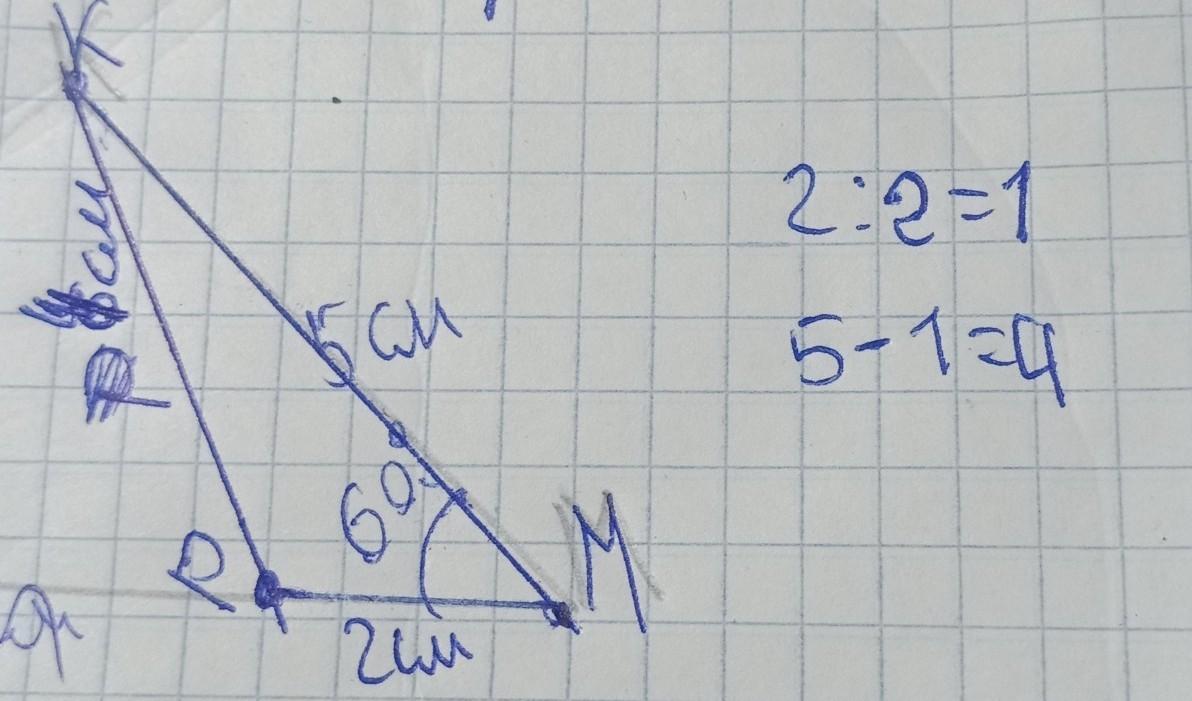 K
см
5 см
60°
P
M
2см
2:2=1
5-1=4